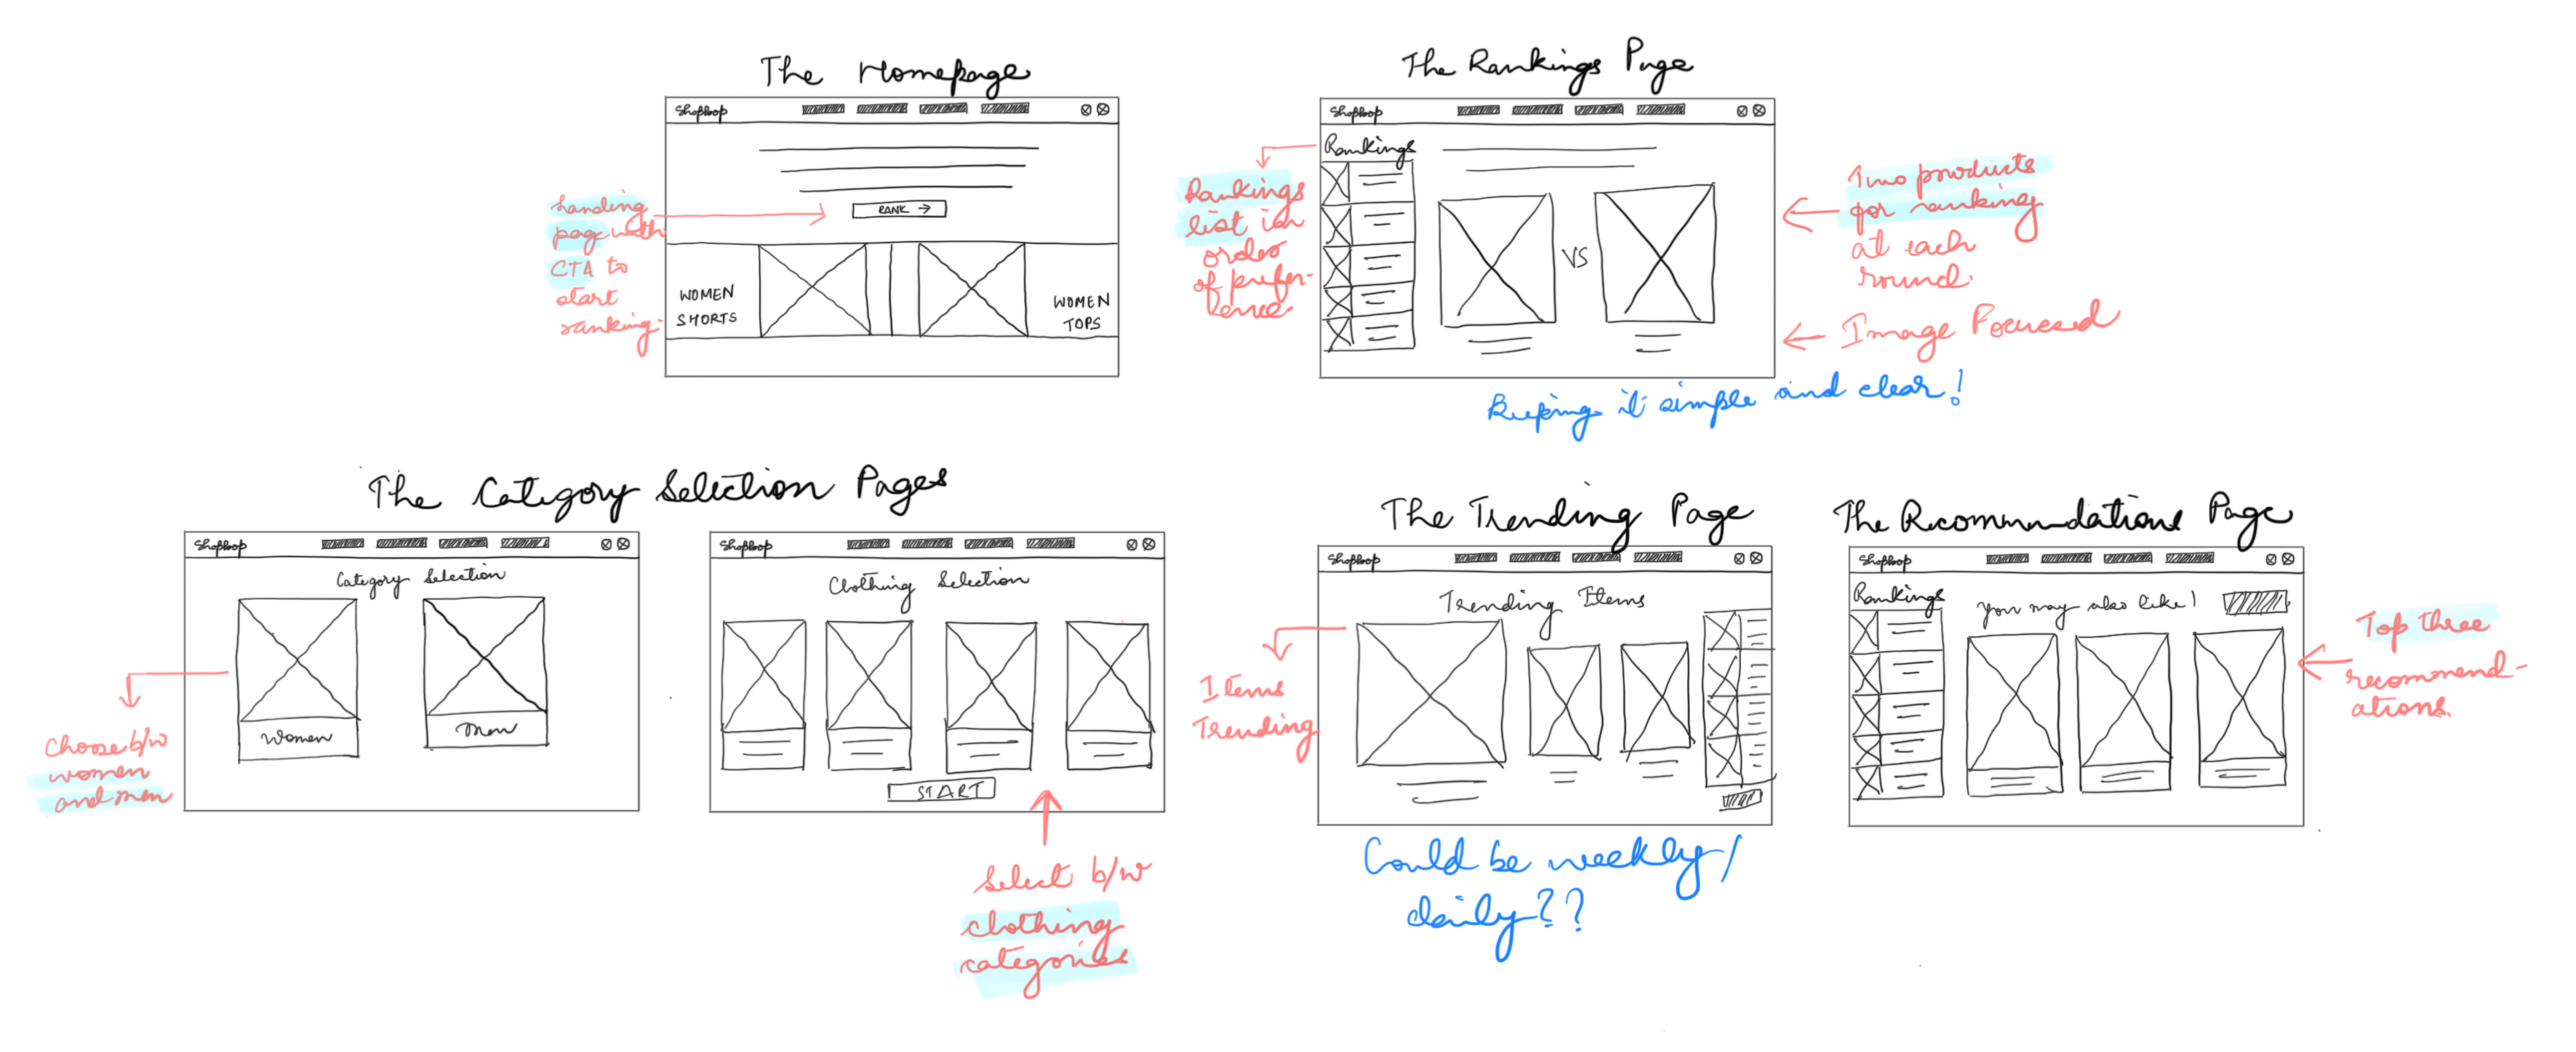 The Homepage
Shoploop
RANK →
WOMEN
SHORTS
WOMEN
TOPS
Landing
page with
CTA to
start
ranking.
The Rankings Page
Shoploop
Rankings
VS
Rankings
list in
order
of prefer-
ence
Two products
for ranking
at each
round.
Image Focused
Keeping it simple and clear!
The Category Selection Pages
Shoploop
Category Selection
Women
Men
Choose b/w
women
and men
Shoploop
Clothing Selection
START
Select b/w
clothing
categories
The Trending Page
Shoploop
Trending Items
Items
Trending
Could be weekly/
daily??
The Recommendations Page
Shoploop
Rankings
You may also like!
Top three
recommend-
ations.